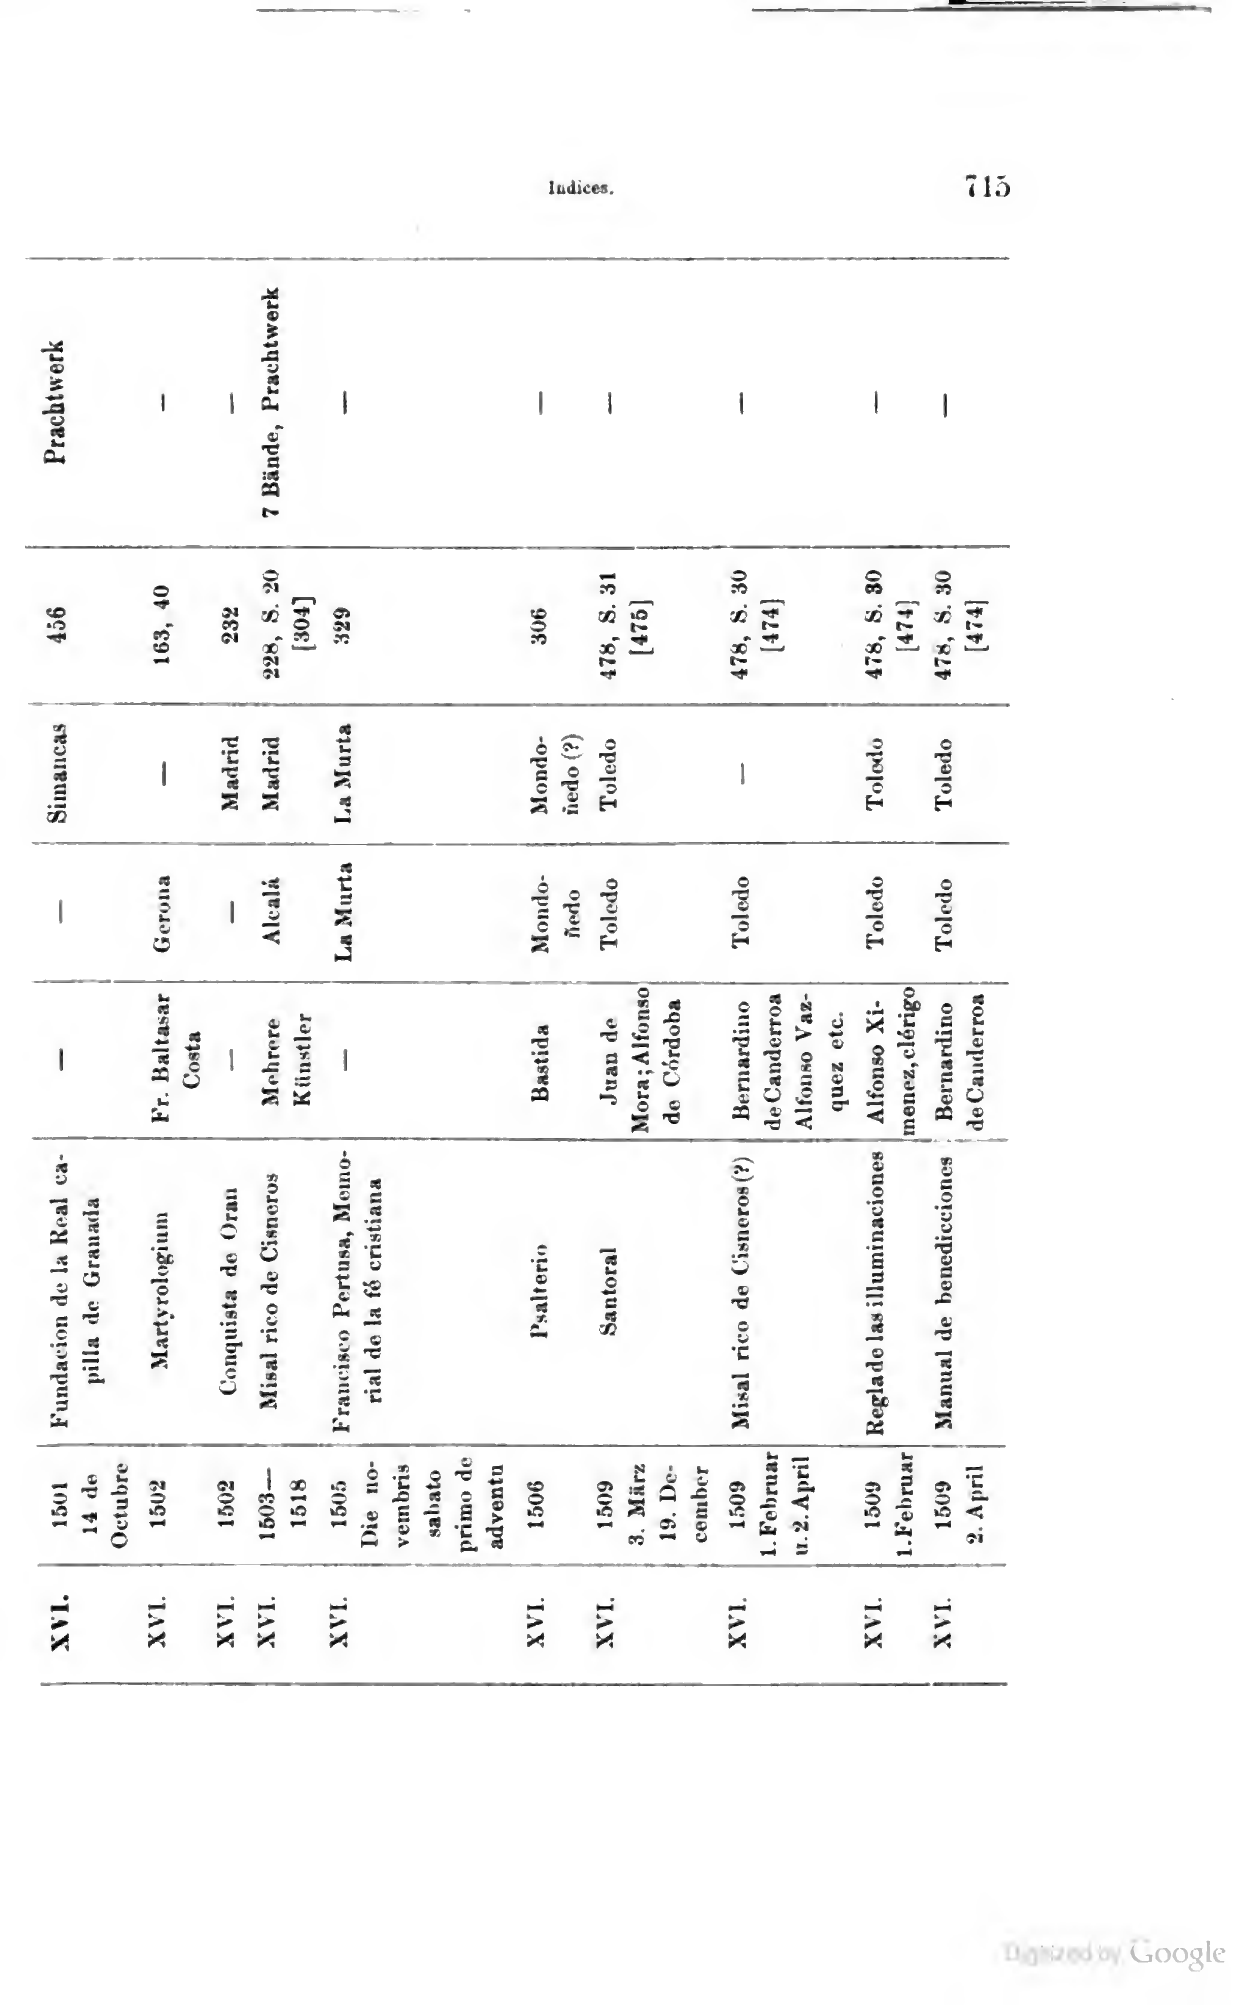 Indices.
715
XVI.
1501
14 de
Octubre
Fundacion de la Real ca-
pilla de Granada
—
—
Simancas
456
Prachtwerk
XVI.
1502
Martyrologium
Fr. Baltasar
Costa
Gerona
—
163, 40
—
XVI.
1502
Conquista de Oran
—
—
Madrid
232
—
XVI.
1503—
1518
Misal rico de Cisneros
Mehrere
Künstler
Alcalá
Madrid
228, S. 20
[304]
7 Bände, Prachtwerk
XVI.
1505
Die no-
vembris
sabato
primo de
adventu
Francisco Pertusa, Memo-
rial de la fé cristiana
—
La Murta
La Murta
329
—
XVI.
1506
Psalterio
Bastida
Mondo-
ñedo
Mondo-
ñedo (?)
306
—
XVI.
1509
3. März
19. De-
cember
Santoral
Juan de
Mora; Alfonso
de Córdoba
Toledo
Toledo
478, S. 31
[475]
—
XVI.
1509
1. Februar
u. 2. April
Misal rico de Cisneros (?)
Bernardino
de Canderroa
Alfonso Vaz-
quez etc.
Toledo
—
478, S. 30
[474]
—
XVI.
1509
1. Februar
Regla de las illuminaciones
Alfonso Xi-
menez, clérigo
Toledo
Toledo
478, S. 30
[474]
—
XVI.
1509
2. April
Manual de benedicciones
Bernardino
de Canderroa
Toledo
Toledo
478, S. 30
[474]
—
Digitized by Google